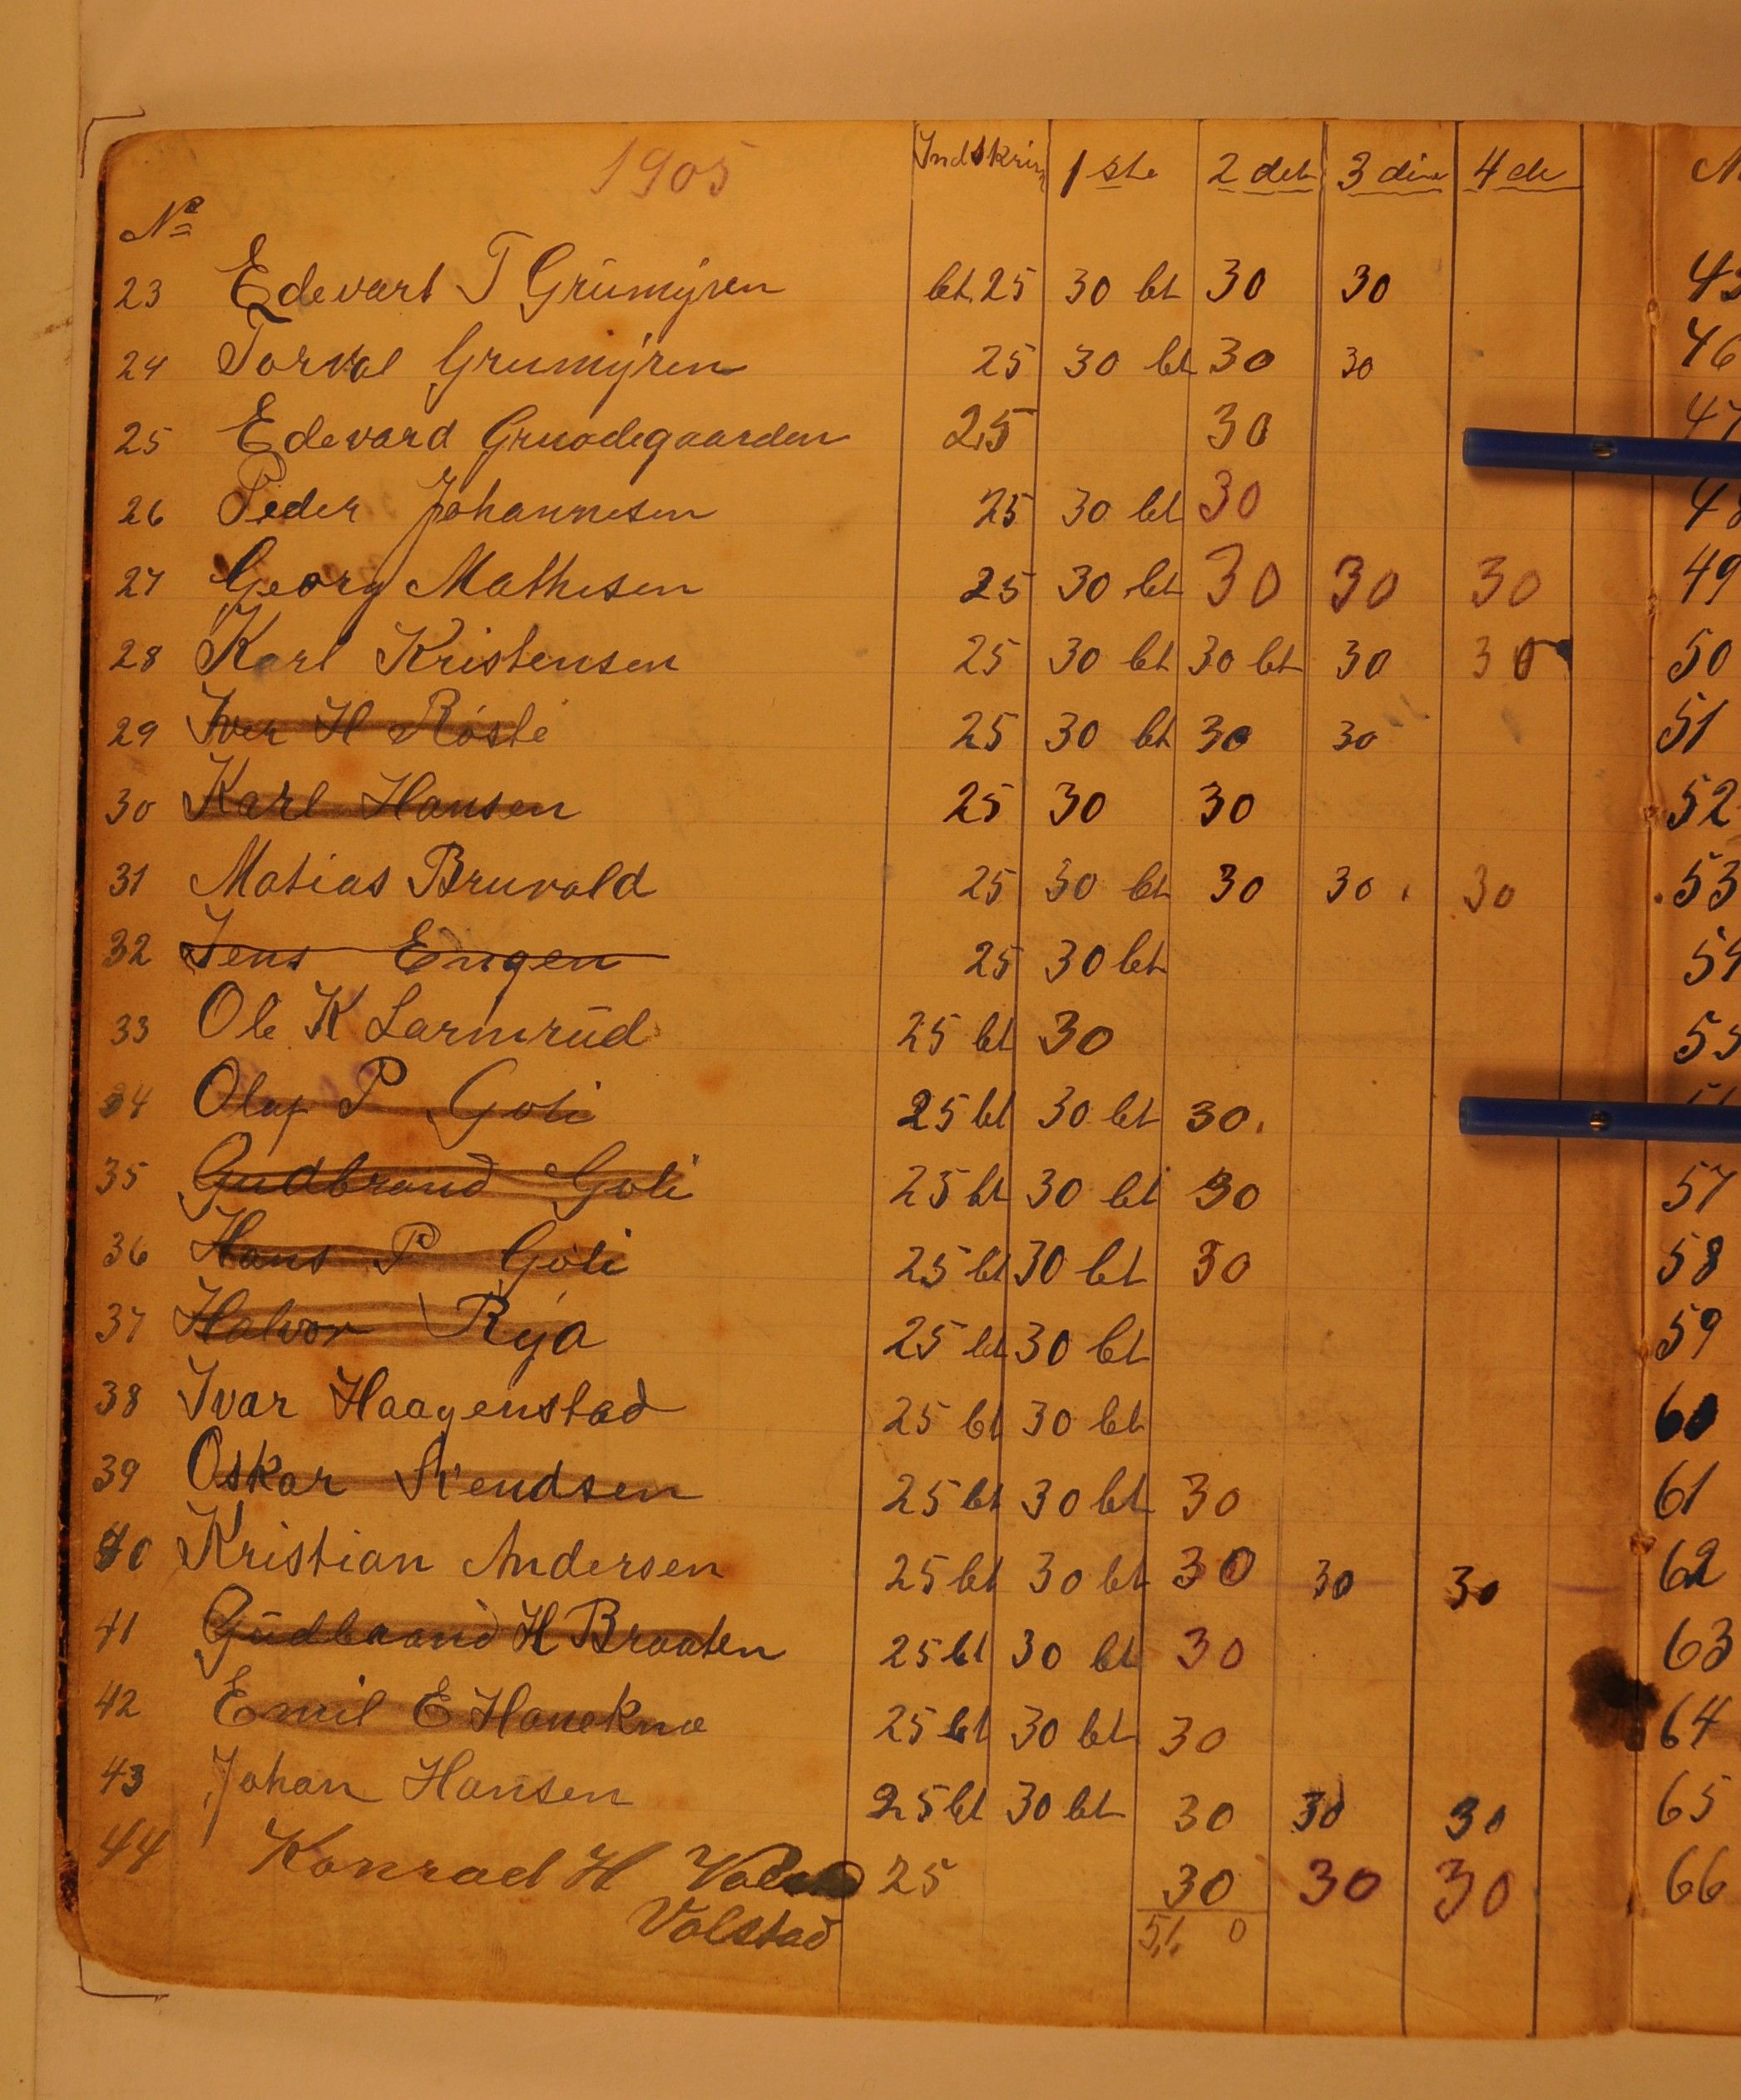 1905 Indskrivn 1ste 2det 3die 4de
No
23 Edevart T Grümÿren bt. 25 30 bt 30 30
24 Torval Grumÿren 25 30 bt 30 30
25 Edevard Gruodegaarden 25 30
26 Peder Johannesen 25 30 bt 30
27 Georg Mathisen 25 30 bt 30 30 30
28 Karl Kristensen 25 30 bt 30 bt 30 30
29 Iver H Röste 25 30 bt 30 30
30 Karl Hansen 25 30 30
31 Matias Bruvold 25 30 bt 30 30 30
32 Jens Engen 25 30 bt
33 Ole K Larmrüd 25 bt 30
34 Olaf P Goli 25 bt 30 bt 30.
35 Gudbrand Goli 25 bt 30 bt 30
36 Hans P Goli 25 bt 30 bt 30
37 Halvor Rya 25 bt 30 bt
38 Ivar Haagenstad 25 bt 30 bt
39 Oskar Svendsen 25 bt 30 bt 30
40 Kristian Andersen 25 bt 30 bt 30 30 30
41 Güdbrand H Braaten 25 bt 30 bt 30
42 Emil E Hanekne 25 bt 30 bt 30
43 Johan Hansen 25 bt 30 bt 30 30 30
44 Konrad H 25 30 30 30
Volstad
46
47
49
50
51
52
53
54
55
57
58
59
60
61
62
63
64
65
66